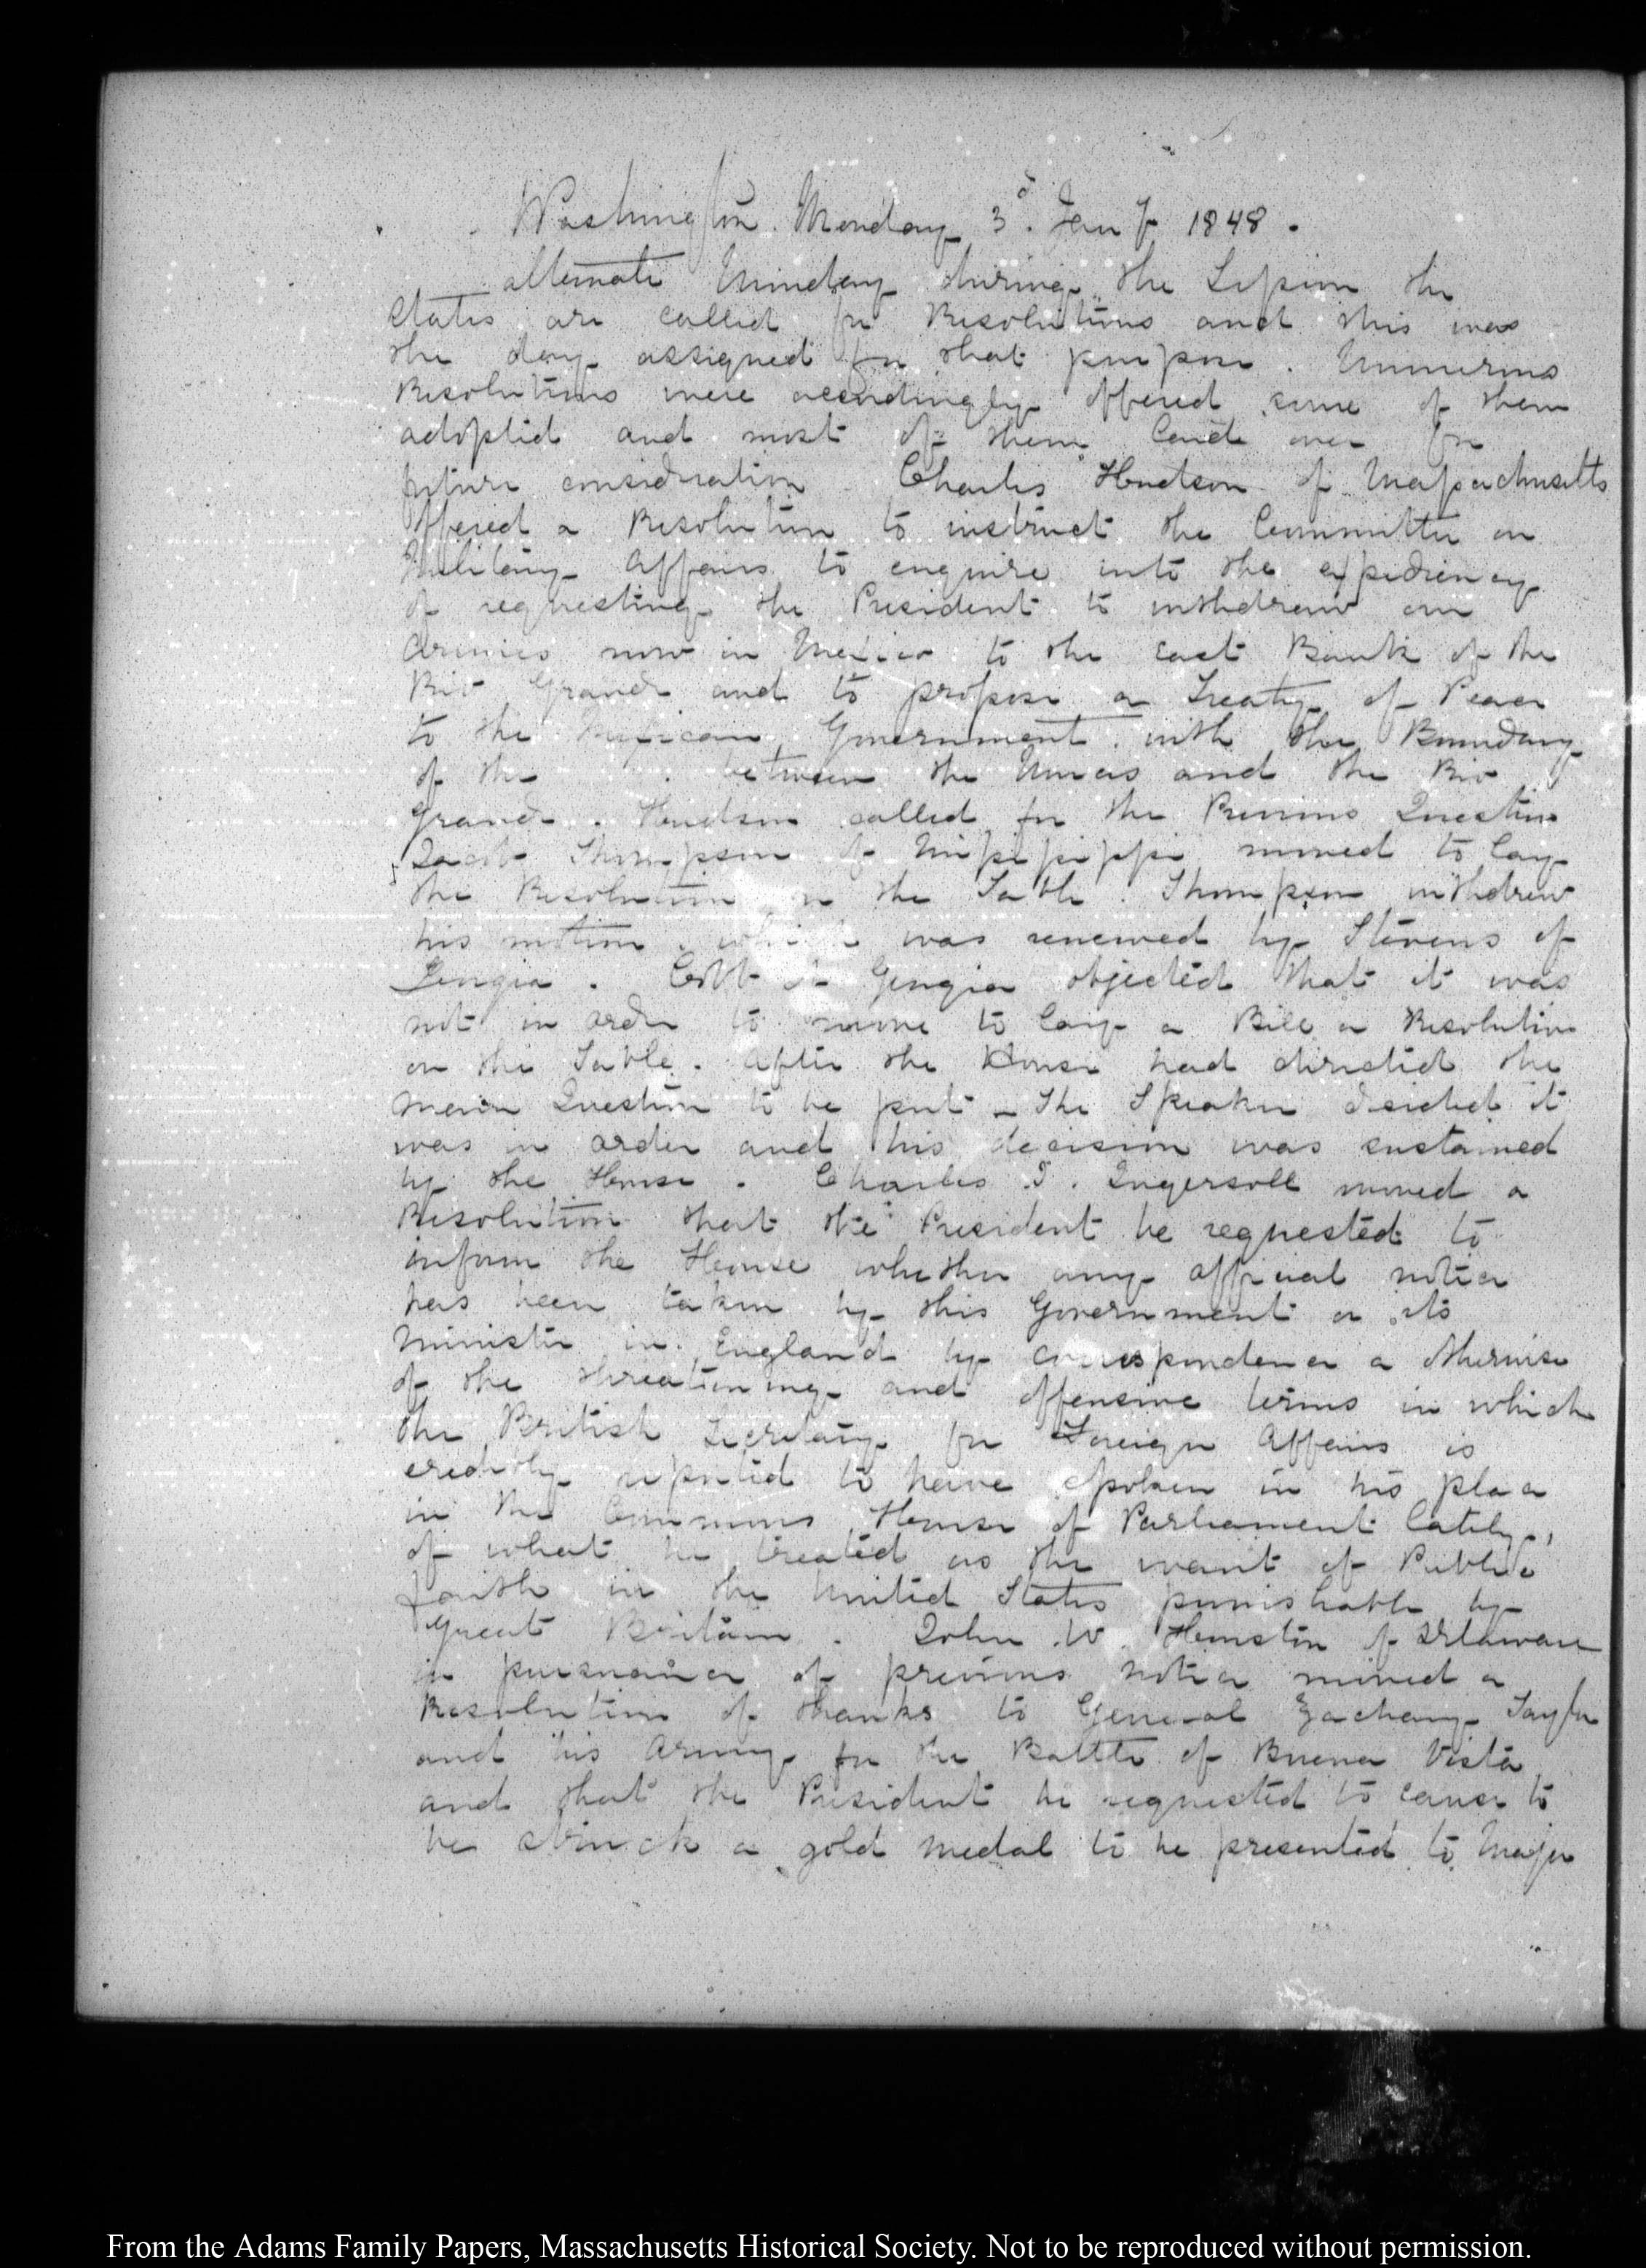 Washington. Monday 3d. Jany 1848.
alternate Monday during the Session the
States are called for Resolutions and this was
the day assigned for that purpose. Numerous
Resolutions were accordingly offered some of them
adopted and most of them laid over for
future consideration Charles Hudson of Massachusetts
offered a Resolution to instruct the Committee on
Military Affairs to enquire into the expediency
of requesting the President to withdraw our
armies now in Mexico to the east Bank of the
Rio Grande and to propose a Treaty of Peace
to the Mexican Government with the Boundary
of the between the Nueces and the Rio
Grande. Hudson called for the Previous Question
Jacob Thompson of Mississippi moved to lay
the Resolution on the Table. Thompson withdrew
his motion, which was renewed by Stevens of
Georgia. Cobb of Georgia objected that it was
not in order to move to lay a Bill or Resolution
on the Table. after the House had directed the
main Question to be put – The Speaker decided it
was in order and his decision was sustained
by the House. Charles J. Ingersoll moved a
Resolution that the President be requested to
inform the House whether any official notice
has been taken by this Government or its
Minister in England by correspondence or otherwise
of the threatening and offensive terms in which
the British Secretary for Foreign Affairs is
credibly reported to have spoken in his place
in the Commons House of Parliament lately,
of what he treated as the want of Public
faith in the United States punishable by
Great Britain. John W. Houston of Delaware
in pursuance of previous notice moved a
Resolution of thanks to General Zachary Taylor
and his Army for the Battle of Buena Vista
and that the President be requested to cause to
be struck a gold medal to be presented to Major
From the Adams Family Papers, Massachusetts Historical Society. Not to be reproduced without permission.